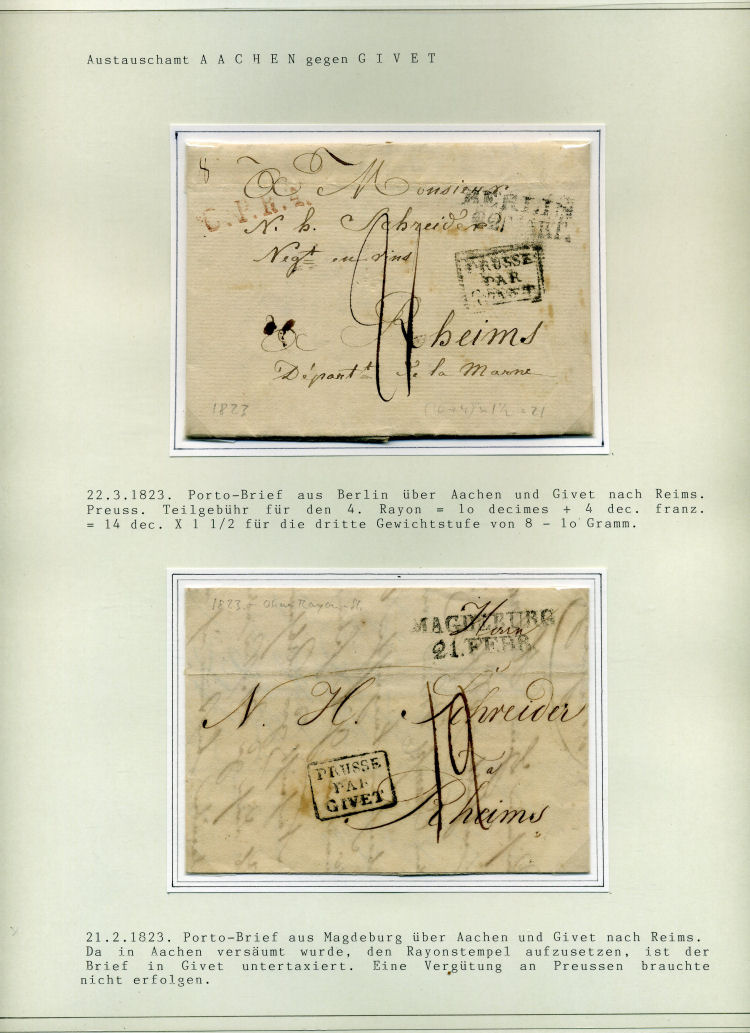 Austauschamt A A C H E N gegen G I V E T
8
A Monsieur
C.P.R.4.
BERLIN
22
N. h. Schreider
Negt en vins
PRUSSE
PAR
GIVET
21
à Rheims
Départt de la Marne
1823
(10+4) x 1½ = 21
22.3.1823. Porto-Brief aus Berlin über Aachen und Givet nach Reims.
Preuss. Teilgebühr für den 4. Rayon = 1o decimes + 4 dec. franz.
= 14 dec. X 1 1/2 für die dritte Gewichtstufe von 8 - 1o Gramm.
1823
MAGDEBURG
21.FEBR.
Herrn
N. H. Schreider
à
PRUSSE
PAR
GIVET
Rheims
21.2.1823. Porto-Brief aus Magdeburg über Aachen und Givet nach Reims.
Da in Aachen versäumt wurde, den Rayonstempel aufzusetzen, ist der
Brief in Givet untertaxiert. Eine Vergütung an Preussen brauchte
nicht erfolgen.